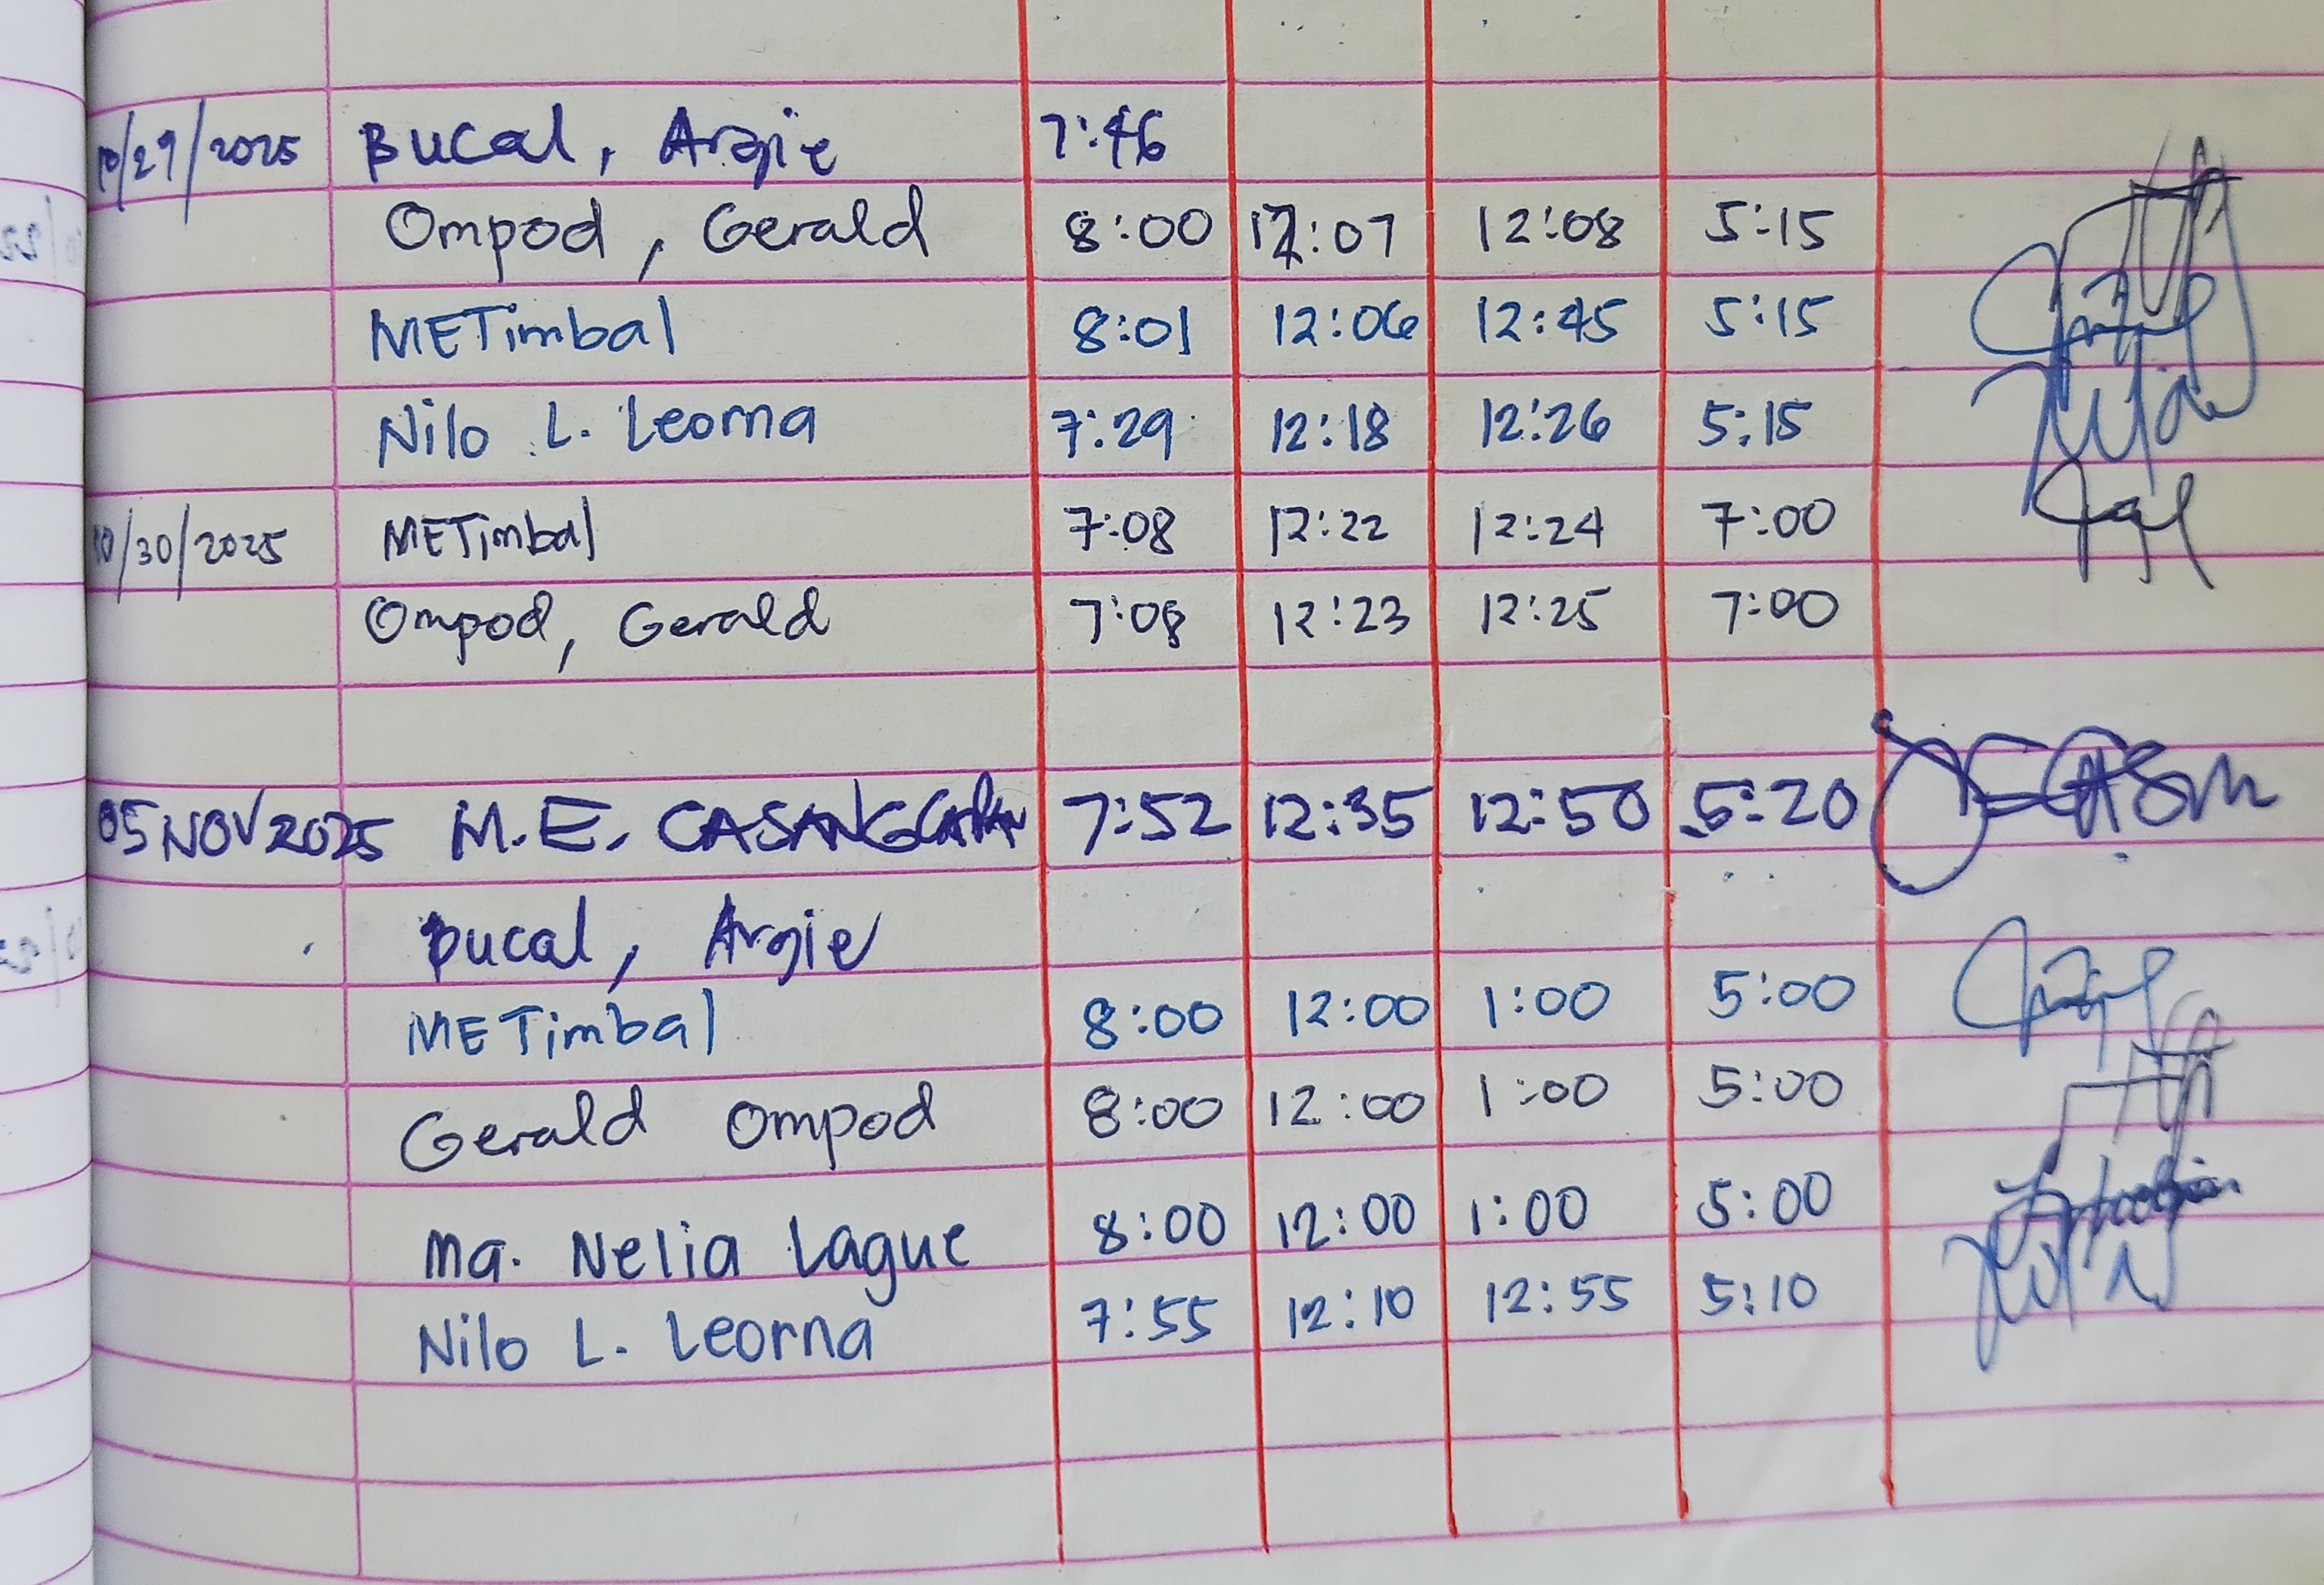 10/29/2025 Bucal, Argie 7:46
Ompod, Gerald 8:00 12:07 12:08 5:15
METimbal 8:01 12:06 12:45 5:15
Nilo L. Leorna 7:29 12:18 12:26 5:15
10/30/2025 METimbal 7:08 12:22 12:24 7:00
Ompod, Gerald 7:08 12:23 12:25 7:00
05 NOV 2025 M.E. 7:52 12:35 12:50 5:20
Bucal, Argie
METimbal 8:00 12:00 1:00 5:00
Gerald Ompod 8:00 12:00 1:00 5:00
Ma. Nelia Lague 8:00 12:00 1:00 5:00
Nilo L. Leorna 7:55 12:10 12:55 5:10